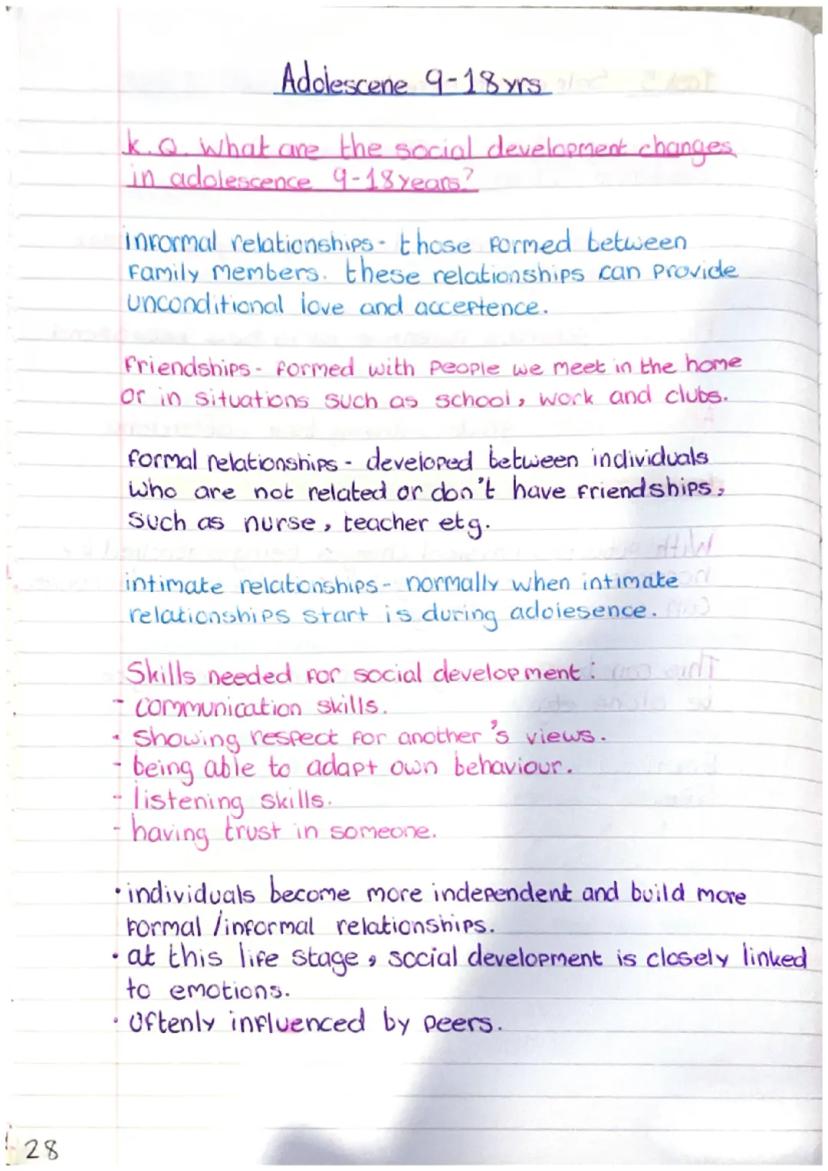 Adolescene 9-18yrs
K.Q. What are the social development changes
in adolescence 9-18years?
informal relationships - those formed between
family members. these relationships can provide
unconditional love and acceptence.
friendships - formed with people we meet in the home
or in situations such as school, work and clubs.
formal relationships - developed between individuals
who are not related or don't have friendships,
such as nurse, teacher etg.
intimate relationships - normally when intimate
relationships start is during adolesence.
Skills needed for social development:
- communication skills.
- Showing respect for another's views.
- being able to adapt own behaviour.
- listening skills.
- having trust in someone.
• individuals become more independent and build more
formal / informal relationships.
• at this life stage, social development is closely linked
to emotions.
• Oftenly influenced by peers.
28